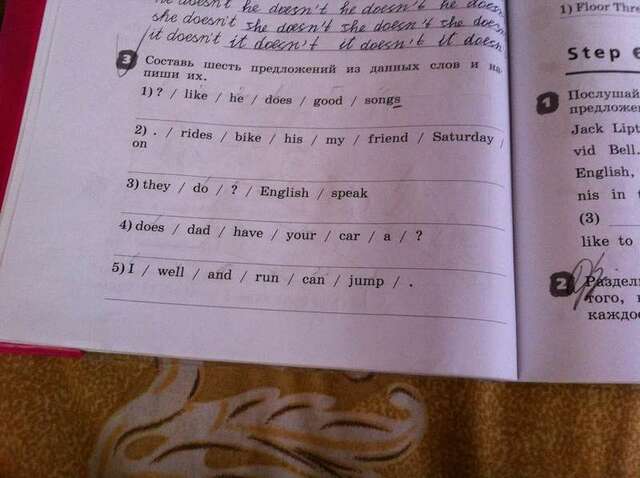 he doesn't he doesn't he doesn't he doesn't
she doesn't she doesn't she doesn't she
it doesn't it doesn't it doesn't it doesn
3 Составь шесть предложений из данных слов и на-
пиши их.
1) ? / like / he / does / good / songs
2) . / rides / bike / his / my / friend / Saturday /
on
3) they / do / ? / English / speak
4) does / dad / have / your / car / a / ?
5) I / well / and / run / can / jump / .
1) Floor Thre
Step
1 Послушай
предложе
Jack Lipt
vid Bell.
English,
nis in
(3)
like to
2 Раздели
того,
каждо